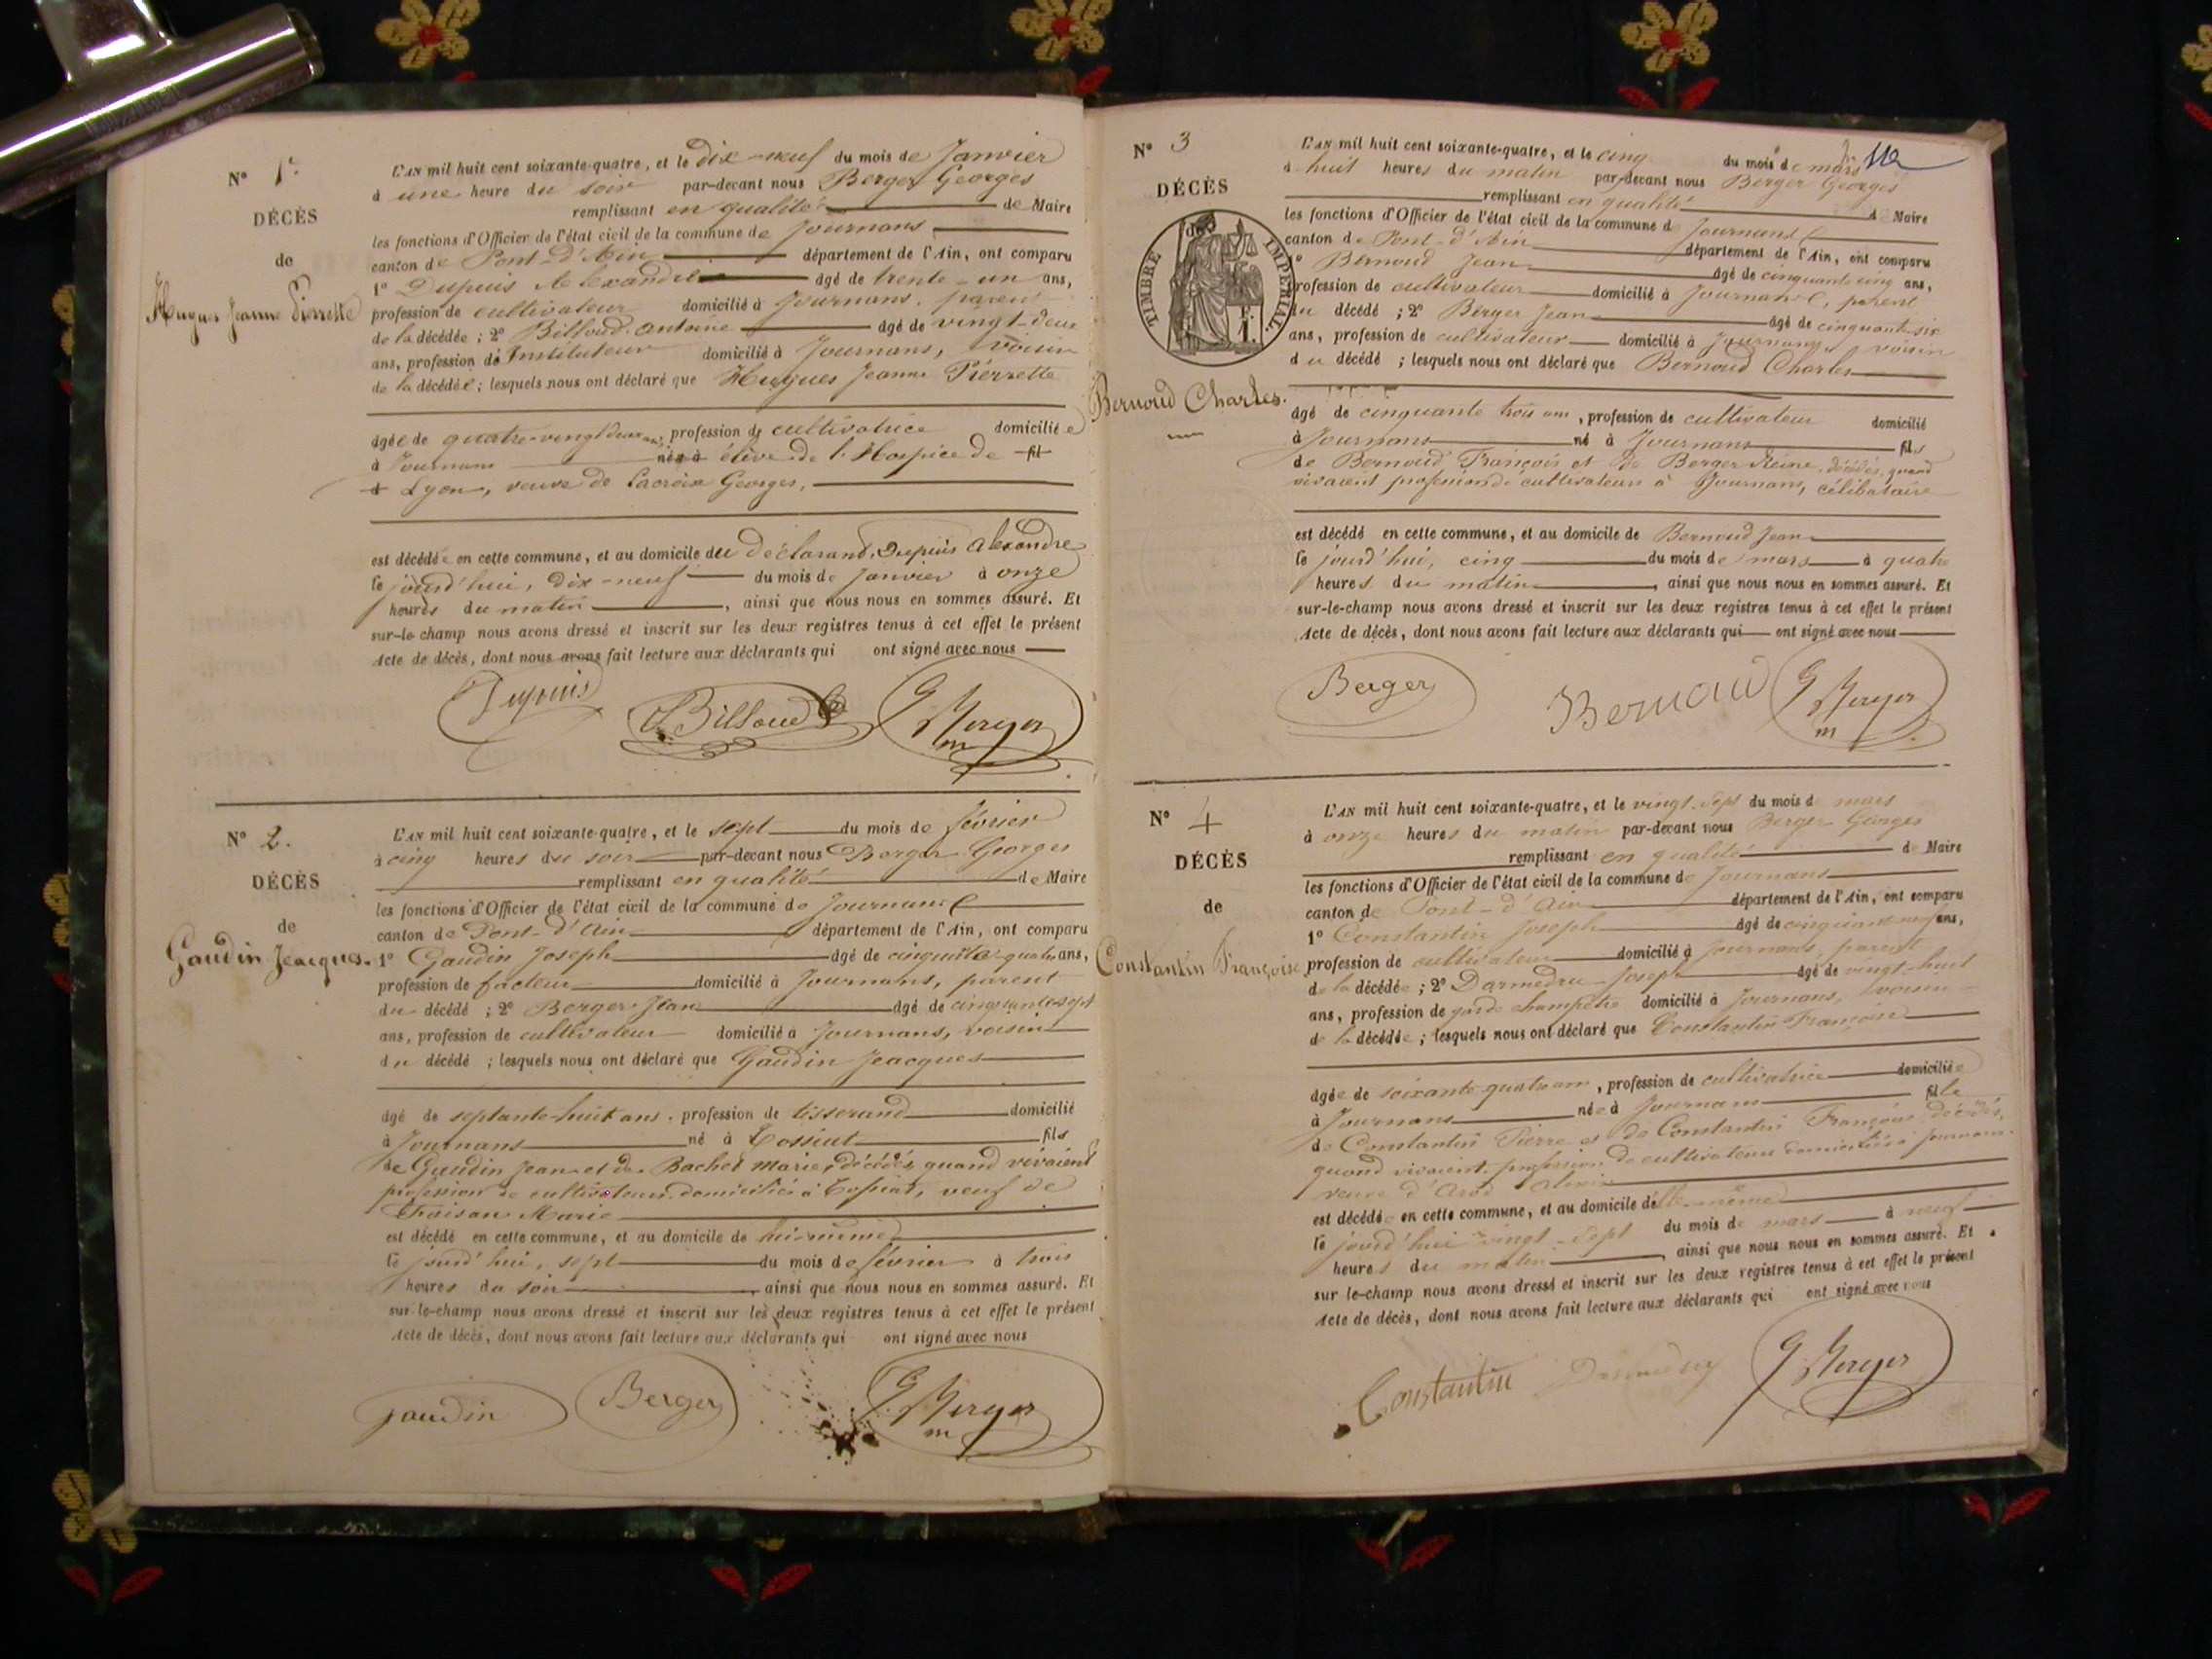 N° 1er
DÉCÈS
de
Hugues Jeanne Pierrette
L'AN mil huit cent soixante-quatre, et le dix-neuf du mois de Janvier
à une heure du soir par-devant nous Berger Georges
remplissant en qualité de Maire
les fonctions d'Officier de l'état civil de la commune de Journans
canton de Pont-d'Ain département de l'Ain, ont comparu
1° Dupuis Alexandre âgé de trente-un ans,
profession de cultivateur domicilié à Journans, parent
de la décédée ; 2° Billoud Antoine âgé de vingt-deux
ans, profession de Instituteur domicilié à Journans, voisin
de la décédée ; lesquels nous ont déclaré que Hugues Jeanne Pierrette
âgée de quatre-vingt deux ans, profession de cultivatrice domiciliée
à Journans née à élève de l'Hospice de fil
d Lyon, veuve de Lacroix Georges,
est décédée en cette commune, et au domicile du déclarant, Dupuis Alexandre
le jourd'hui, dix-neuf du mois de Janvier à onze
heures du matin , ainsi que nous nous en sommes assuré. Et
sur-le-champ nous avons dressé et inscrit sur les deux registres tenus à cet effet le présent
Acte de décès, dont nous avons fait lecture aux déclarants qui ont signé avec nous
Dupuis A. Billoud G Berger m
N° 2.
DÉCÈS
de
Gaudin Jeacques.
L'AN mil huit cent soixante-quatre, et le sept du mois de février
à cinq heures du soir par-devant nous Berger Georges
remplissant en qualité de Maire
les fonctions d'Officier de l'état civil de la commune de Journans
canton de Pont-d'Ain département de l'Ain, ont comparu
1° Gaudin Joseph âgé de cinquante quatre ans,
profession de facteur domicilié à Journans, parent
du décédé ; 2° Berger Jean âgé de cinquante-sept
ans, profession de cultivateur domicilié à Journans, voisin
du décédé ; lesquels nous ont déclaré que Gaudin Jeacques
âgé de septante-huit ans, profession de tisserand domicilié
à Journans né à Tossiat fils
de Gaudin Jean et de Bachet Marie, décédés, quand vivaient
profession de cultivateurs domiciliés à Tossiat, veuf de
Marie
est décédé en cette commune, et au domicile de lui-même
le jourd'hui, sept du mois de février à trois
heures du soir , ainsi que nous nous en sommes assuré. Et
sur-le-champ nous avons dressé et inscrit sur les deux registres tenus à cet effet le présent
Acte de décès, dont nous avons fait lecture aux déclarants qui ont signé avec nous
Gaudin Berger G Berger m
N° 3
DÉCÈS
de
TIMBRE IMPÉRIAL.
Bernoud Charles.
L'AN mil huit cent soixante-quatre, et le cinq du mois de mars
à huit heures du matin par-devant nous Berger Georges
remplissant en qualité de Maire
les fonctions d'Officier de l'état civil de la commune de Journans
canton de Pont-d'Ain département de l'Ain, ont comparu
1° Bernoud Jean âgé de cinquante cinq ans,
profession de cultivateur domicilié à Journans, parent
du décédé ; 2° Berger Jean âgé de cinquante-six
ans, profession de cultivateur domicilié à Journans, voisin
du décédé ; lesquels nous ont déclaré que Bernoud Charles
âgé de cinquante trois ans, profession de cultivateur domicilié
à Journans né à Journans fils
de Bernoud François et de Berger Reine, décédés, quand
vivaient profession de cultivateurs à Journans, célibataire
est décédé en cette commune, et au domicile de Bernoud Jean
le jourd'hui, cinq du mois de mars à quatre
heures du matin , ainsi que nous nous en sommes assuré. Et
sur-le-champ nous avons dressé et inscrit sur les deux registres tenus à cet effet le présent
Acte de décès, dont nous avons fait lecture aux déclarants qui ont signé avec nous
Berger Bernoud G Berger m
N° 4
DÉCÈS
de
Constantin Françoise
L'AN mil huit cent soixante-quatre, et le vingt-sept du mois de mars
à onze heures du matin par-devant nous Berger Georges
remplissant en qualité de Maire
les fonctions d'Officier de l'état civil de la commune de Journans
canton de Pont-d'Ain département de l'Ain, ont comparu
1° Constantin Joseph âgé de cinquante neuf ans,
profession de cultivateur domicilié à Journans, parent
de la décédée ; 2° Darmedru Joseph âgé de vingt-huit
ans, profession de garde champêtre domicilié à Journans, voisin
de la décédée ; lesquels nous ont déclaré que Constantin Françoise
âgée de soixante-quatre ans, profession de cultivatrice domiciliée
à Journans née à Journans fille
de Constantin Pierre et de Constantin Françoise décédés,
quand vivaient profession de cultivateurs domiciliés à Journans
veuve d'
est décédée en cette commune, et au domicile d'elle-même
le jourd'hui vingt-sept du mois de mars à neuf
heures du matin , ainsi que nous nous en sommes assuré. Et
sur le-champ nous avons dressé et inscrit sur les deux registres tenus à cet effet le présent
Acte de décès, dont nous avons fait lecture aux déclarants qui ont signé avec nous
Constantin Darmedru G Berger